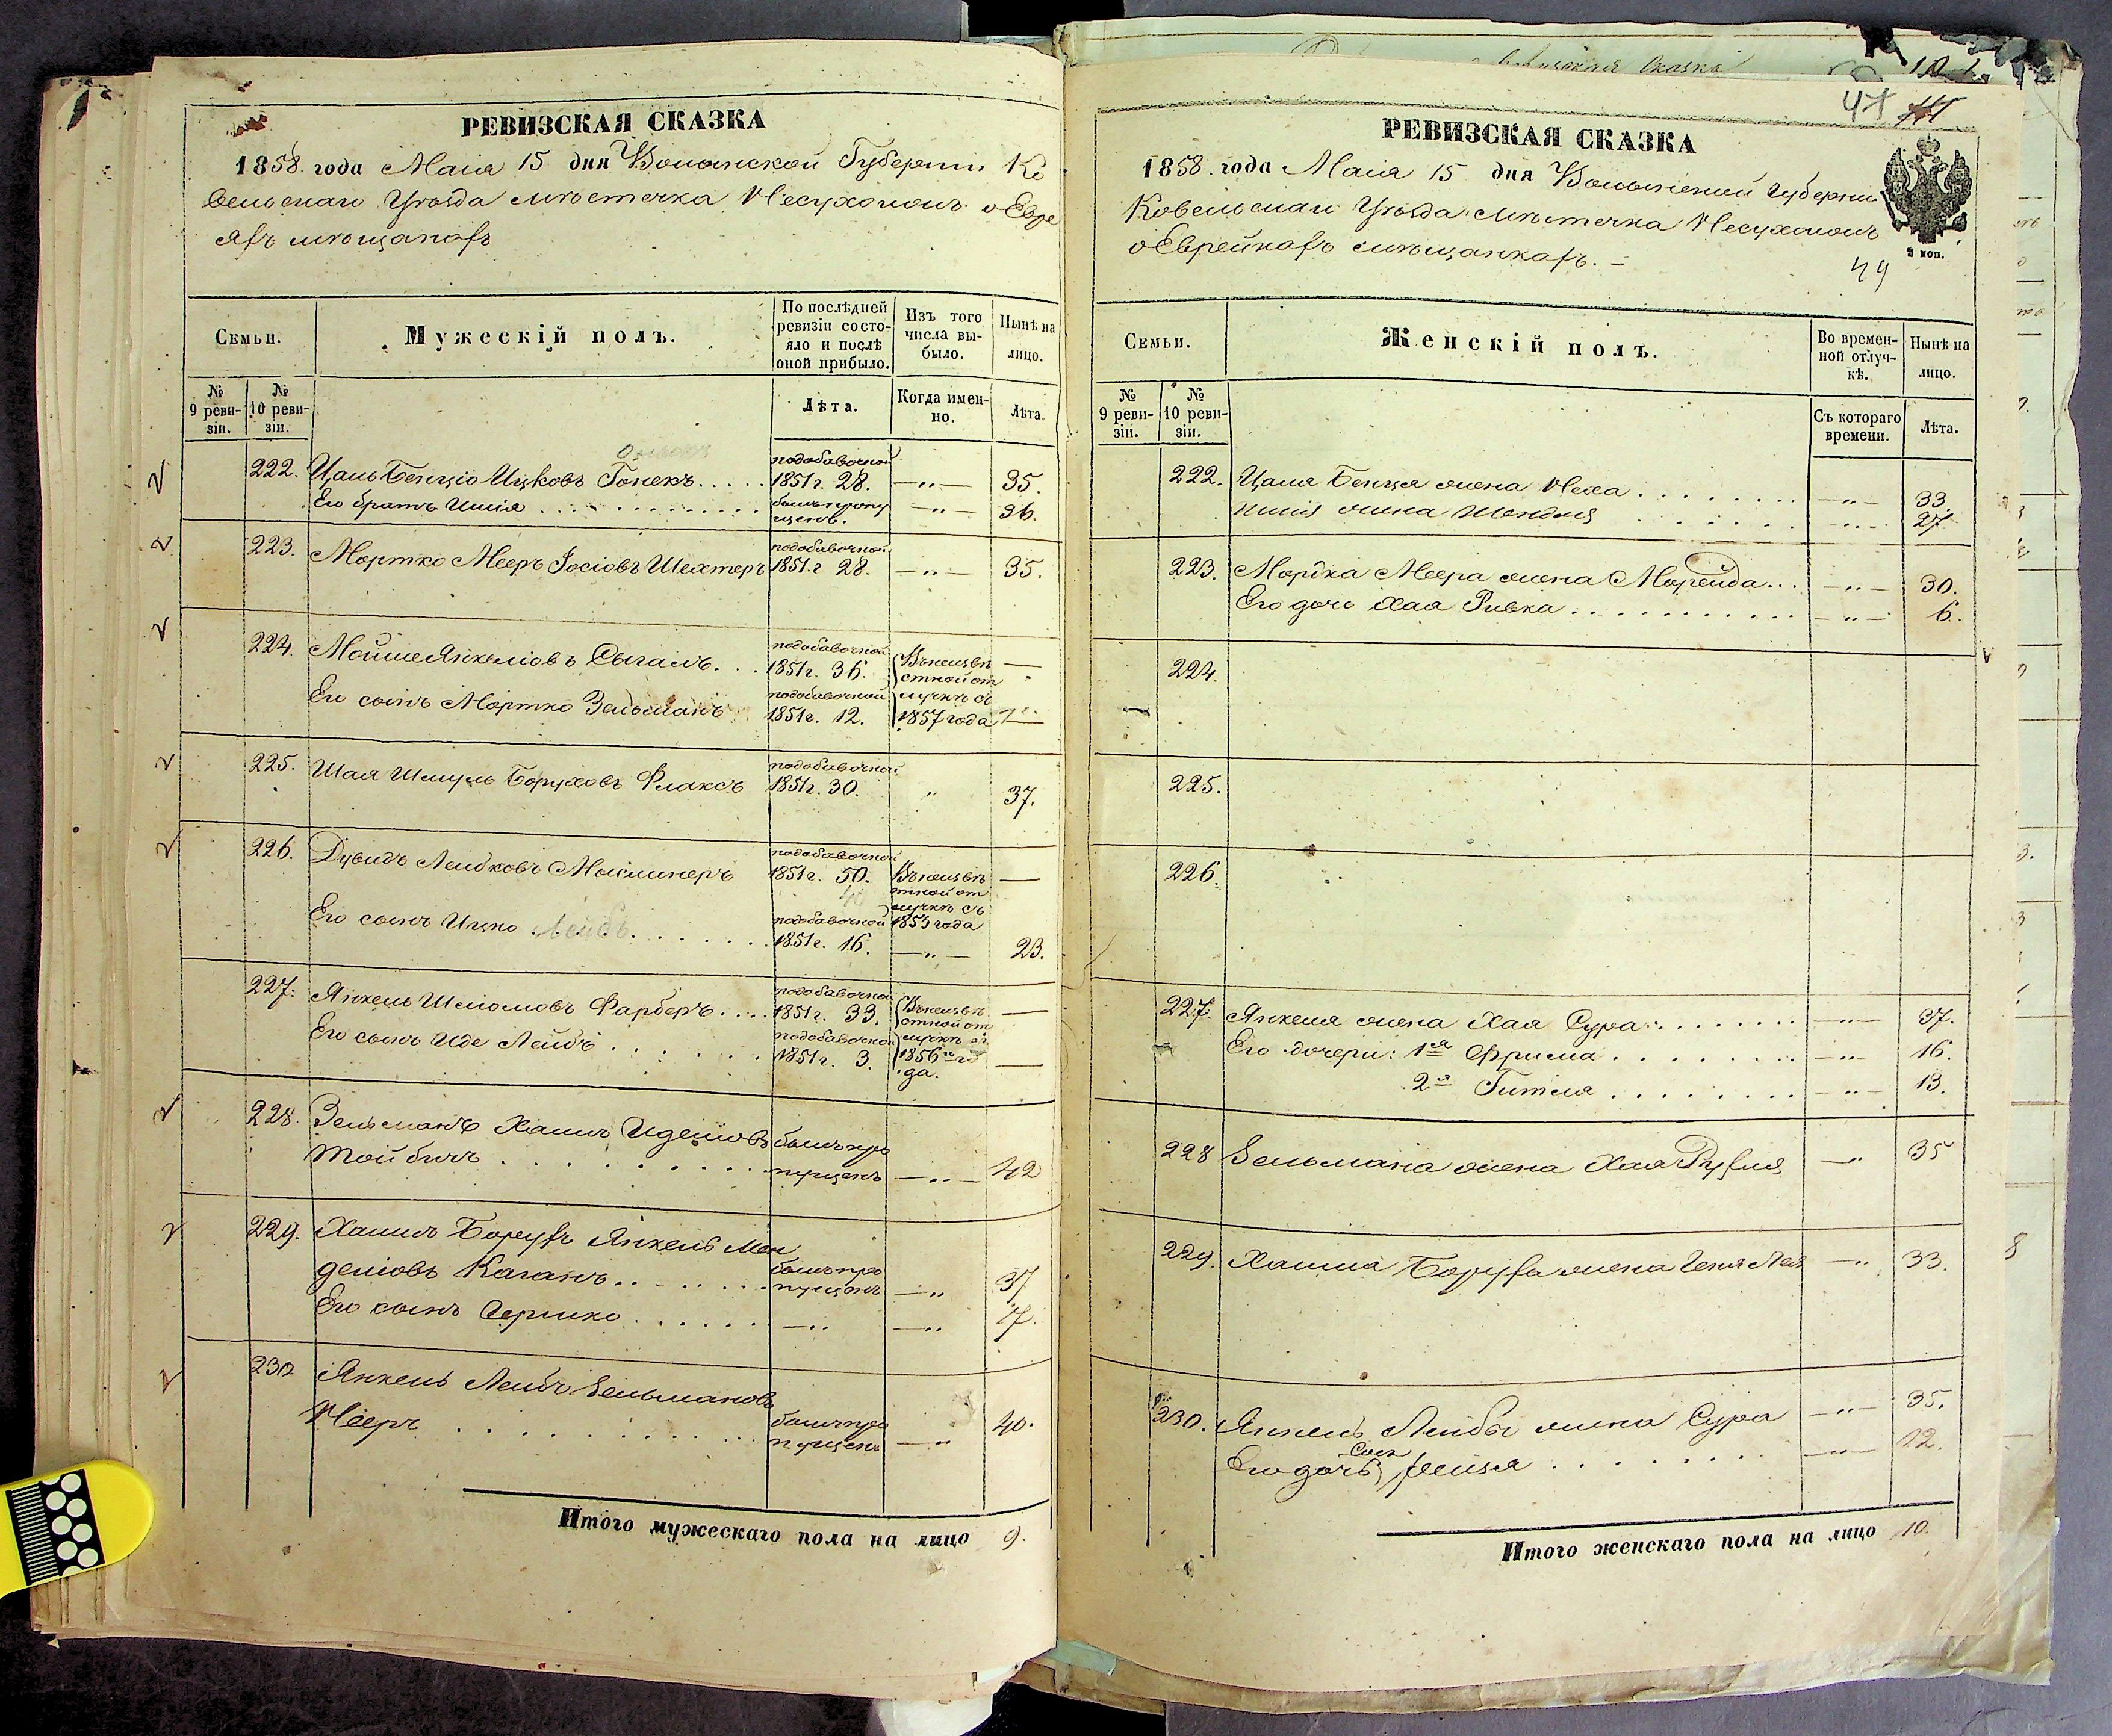 РЕВИЗСКАЯ СКАЗКА
1858 года Маія 15 дня Волынской Губерніи Ко
вельскаго Уѣзда мѣстечка Несухоижъ о Евре
яхъ мѣщанахъ
Семьи.
Мужескій полъ.
По послѣдней ревизіи состояло и послѣ оной прибыло.
Изъ того числа выбыло.
Нынѣ на лицо.
№ 9 ревизіи.
№ 10 ревизіи.
Лѣта.
Когда именно.
Лѣта.
222. Цаль Бенціо Ицковъ Гонекъ . . . . . подобавочной 1851 г. 28. —"— 35.
Его братъ Ишія . . . . . . былъ пропущенъ. —"— 36.
223. Мортко Мееръ Іосіовъ Шехтеръ подобавочной 1851 г. 28. —"— 35.
224. Мойше Янкеліовъ Сыгалъ. . . подобавочной 1851 г. 36. Въ неизвѣстной отлучкѣ съ 1857 года —
Его сынъ Мортко Зельманъ подобавочной 1851 г. 12. —
225. Шая Шмуль Боруховъ Флаксъ подобавочной 1851 г. 30. " 37.
226. Дувидъ Лейбковъ подобавочной 1851 г. 50. Въ неизвѣстной отлучкѣ съ 1853 года —
Его сынъ Ицко Лейбъ . . . . . . подобавочной 1851 г. 16. —"— 23.
227. Янкель Шліомовъ Фарберъ . . . . подобавочной 1851 г. 33. Въ неизвѣстной отлучкѣ съ 1856 года. —
Его сынъ Иде Лейбъ . . . . . . подобавочной 1851 г. 3. —
228. Зельманъ Хаимъ Иделіовъ былъ про
Тойбичъ . . . . . . . . . пущенъ —"— 42
229. Хаимъ Борухъ Янкель Мен
деліовъ Каганъ . . . . . . былъ пропущенъ —" 37
Его сынъ Гершко . . . . . . —" —" 17.
230 Янкель Лейбъ Зельмановъ
Мееръ . . . . . . . . . былъ пропущенъ —" 40.
Итого мужескаго пола на лицо 9.
47
РЕВИЗСКАЯ СКАЗКА
1858. года Маія 15 дня Волынской Губерніи
Ковельскаго Уѣзда мѣстечка Несухоижъ
о Еврейкахъ мѣщанкахъ. –
2 коп.
49
Семьи.
Женскій полъ.
Во временной отлучкѣ.
Нынѣ на лицо.
№ 9 ревизіи.
№ 10 ревизіи.
Съ котораго времени.
Лѣта.
222. Цаля Бенція жена Неха . . . . . . . —"— 33.
Ишія жена Шендля . . . . . . —"— 27.
223. Мортка Меера жена Марейда . . . —"— 30.
Его дочь Хая Ривка . . . . . . . . . —"— 6.
224.
225.
226.
227. Янкеля жена Хая Сура . . . . . . . —"— 37.
Его дочери: 1я Фрима . . . . . . . —"— 16.
2я Гитля . . . . . . . —"— 13.
228 Зельмана жена Хая Рухля —" 35
229. Хаима Боруха жена Геня Лея —" 33.
230. Янкель Лейбы жена Сура —"— 35.
Его дочь . . . . . . . —"— 12.
Итого женскаго пола на лицо 10.